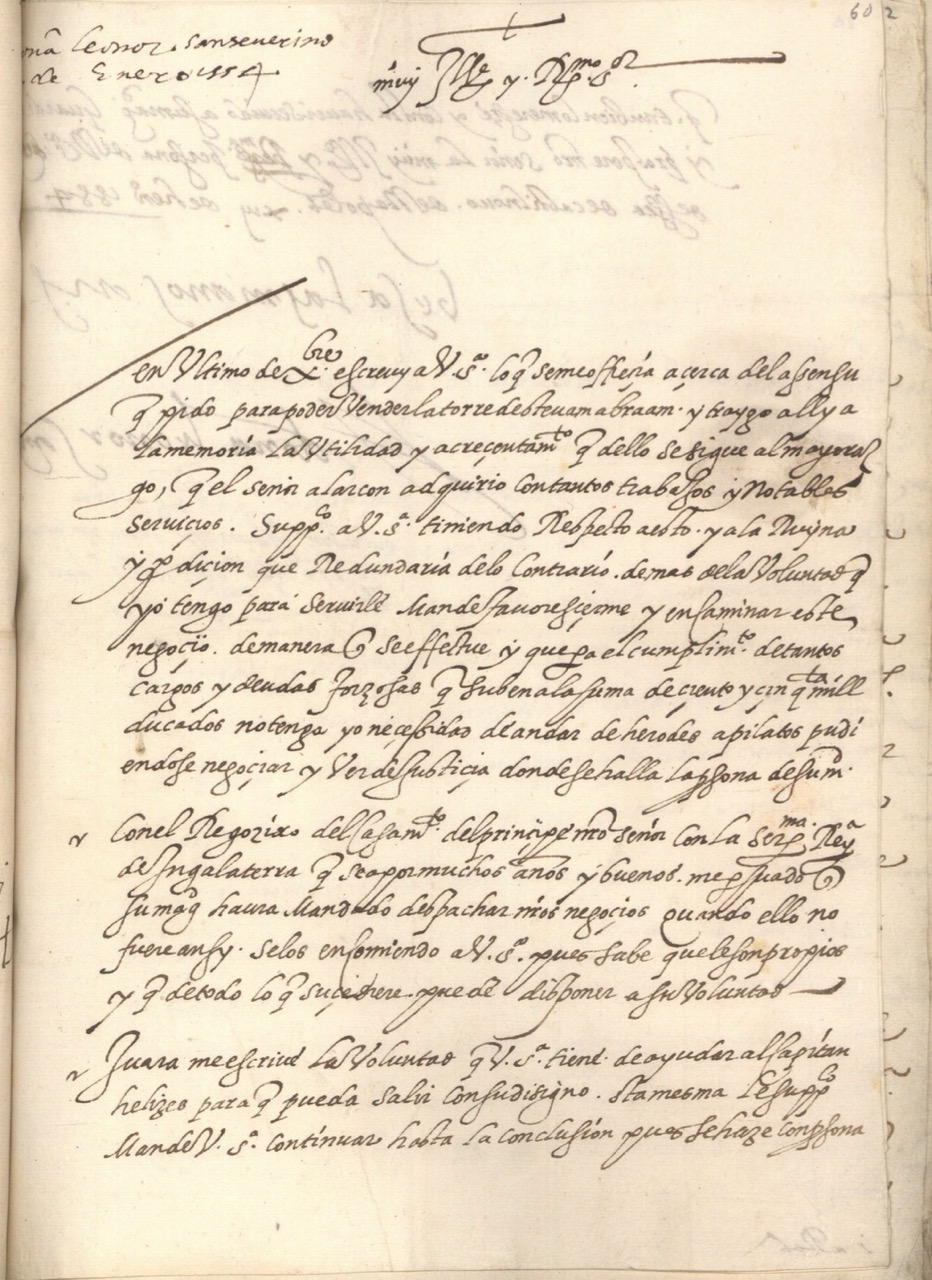 60 2
ona leonor sanseverino
de Enero 1554
muy Ille y Rmo sor
en Ultimo de xbre escreuy a V. sa. lo q̃ se me offreria açerca del assensu
q̃ pido para poder Vender la torre de steuam abraam. y traygo ally a
la memoria la Utilidad y acreçentamto q̃ dello se sigue al mayoraz
go, q̃ el señor alarcon adquirio con tantos trabajos y Notables
servicios. Suppco. a V. sa. tiniendo Respecto a esto. y a la Ruyna
y p̱diçion que Redundaria de lo Contrario. demas de la Voluntad q̃
yo tengo para servirle Mande favoresçerme y encaminar este
negoçio. de manera q̃ se effectue y que pa el cumplimto. de tantos
cargos y deudas forzosas q̃ suben a la suma de ciento y cinqta mill
ducados no tenga yo neçessidad de andar de herodes a pilatos pudi
endose negoçiar y Ver de Justicia donde se halla la pssona de su mt.
Con el Regozixo del Casamto. del prinçipe nro señor con la Serma. Reya
de Ingalaterra q̃ sea por muchos años y buenos. me p̱suado q̃
su magd haura Mandado despachar mis negocios quando ello no
fuere ansy. se los encomiendo a V. sa. pues sabe que le son proprios
y q̃ de todo lo q̃ suçediere puede disponer a su Voluntad
Juara me escriue la Voluntad q̃ V. sa. tiene de ayudar al capitan
helizes para q̃ pueda salir con su disigno. sta mesma le suppco
Mande V. sa. continuar hasta la conclusión pues se haze con pssona